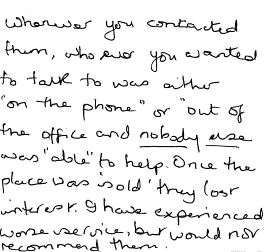 Whenever you contacted
them, who ever you wanted
to talk to was either
"on the phone" or "out of
the office and nobody else
was "able" to help. Once the
place was 'sold' they lost
interest. I have experienced
worse service, but would not
recommend them.